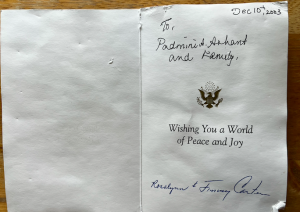 Dec 10th, 2003
To,
Padmini & Arhant
and Family,
Wishing You a World
of Peace and Joy
Rosalynn & Jimmy Carter